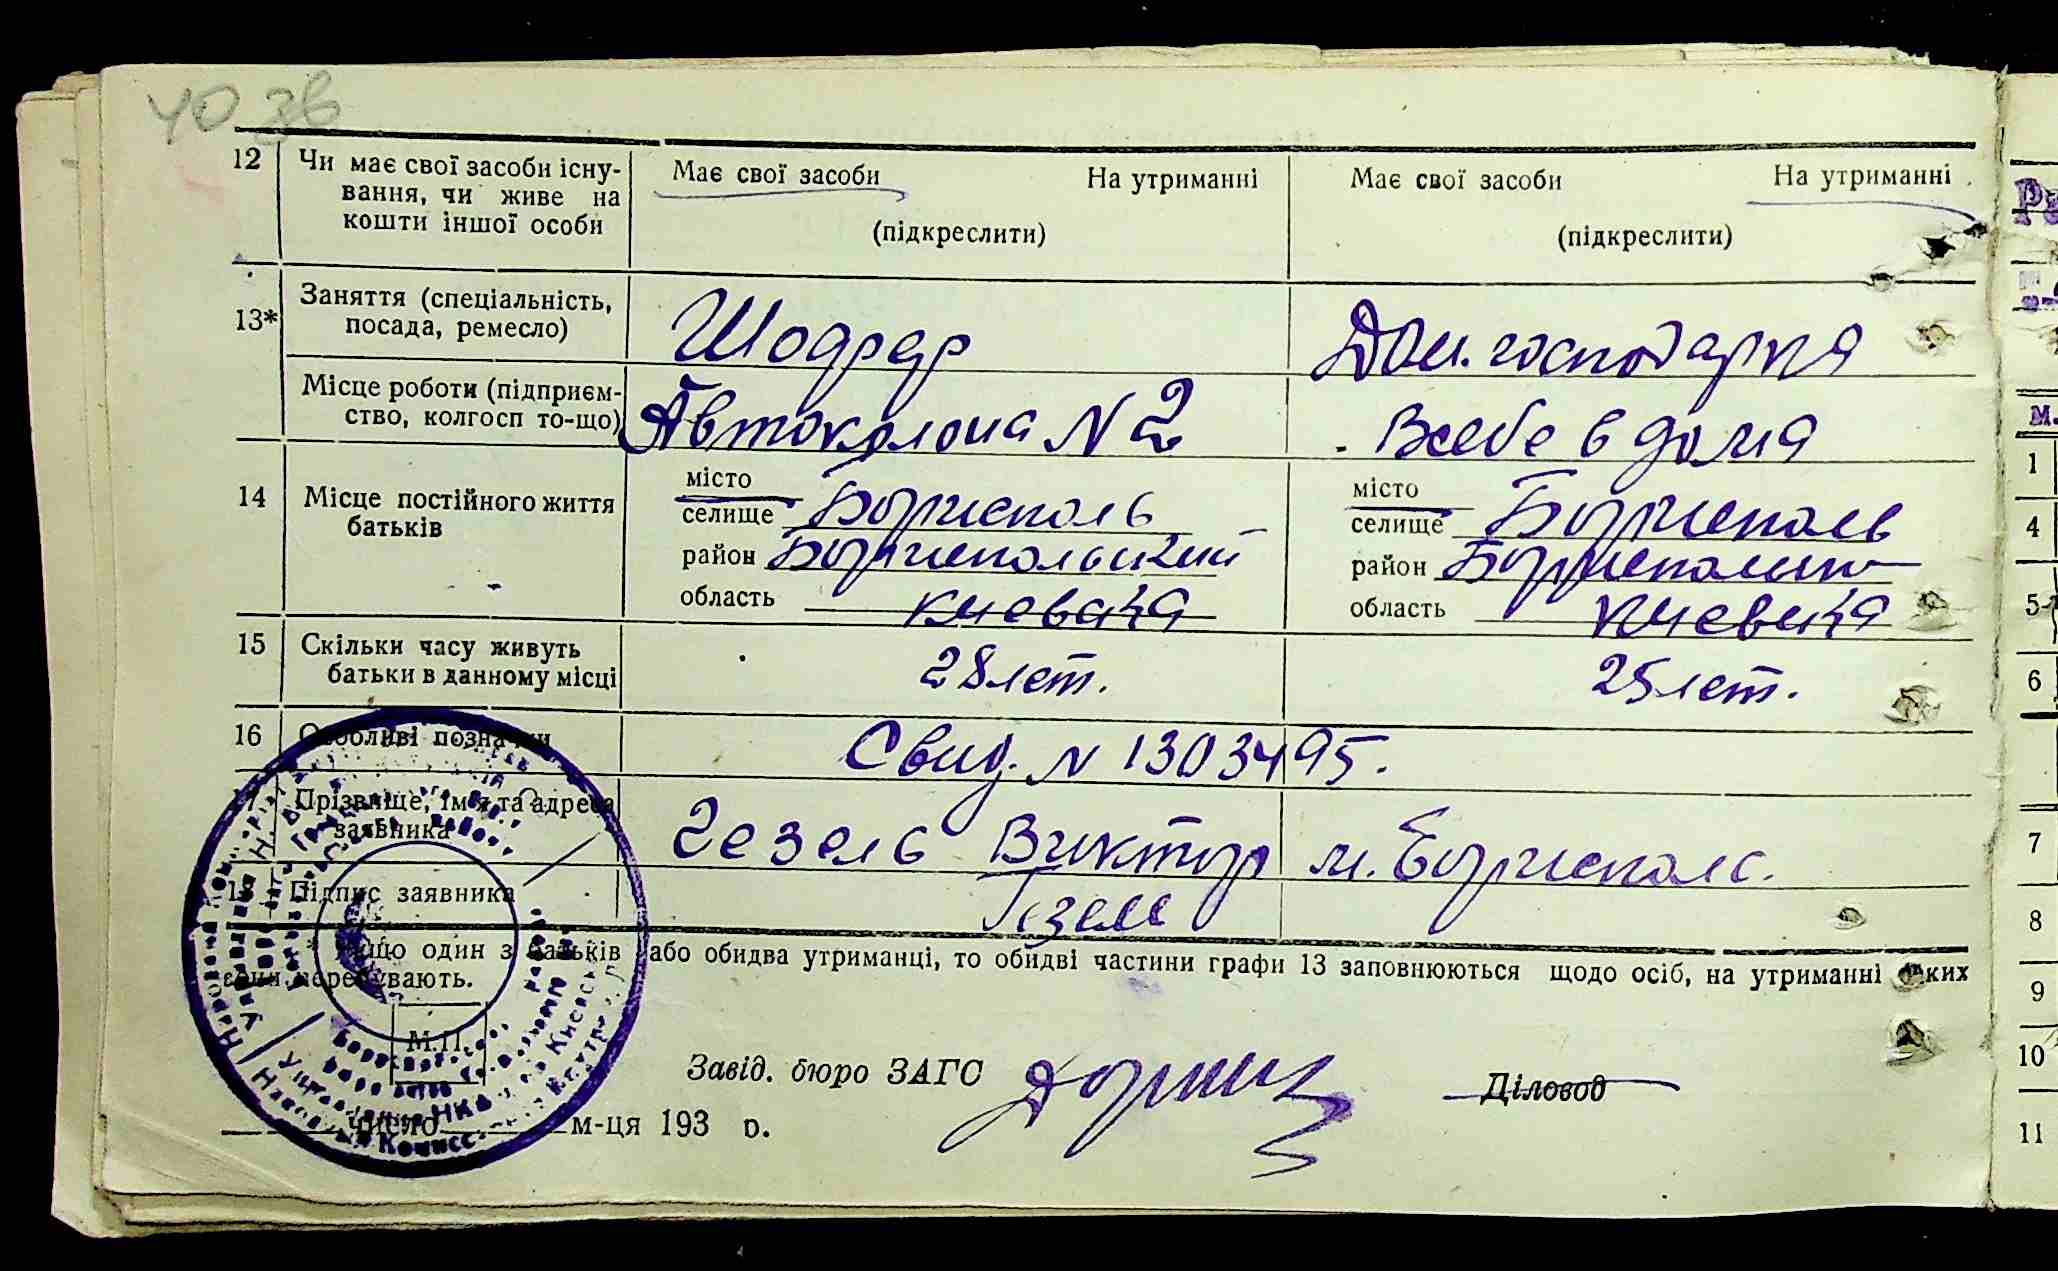 40 зв
12 Чи має свої засоби існу- Має свої засоби На утриманні Має свої засоби На утриманні
вання, чи живе на
кошти іншої особи (підкреслити) (підкреслити)
13* Заняття (спеціальність,
посада, ремесло) Шофер Дом. господарпя
Місце роботи (підприєм-
ство, колгосп то-що) Автоколона N 2 В себе в дома
14 Місце постійного життя
батьків
місто
селище Борисполь
район Бориспольский
область Киевская
місто
селище Борисполь
район
область Киевская
15 Скільки часу живуть
батьки в данному місці 28 лет. 25 лет.
16 Особливі позначки Свид. N 1303495.
17 Прізвище, ім'я та адреса
заявника Гезель Виктор м. Борисполь.
18 Підпис заявника Гезель
* Якщо один з батьків або обидва утриманці, то обидві частини графи 13 заповнюються щодо осіб, на утриманні яких
вони перебувають.
М.П.
Завід. бюро ЗАГС Діловод
число м-ця 193 р.
м.
1
4
5
6
7
8
9
10
11